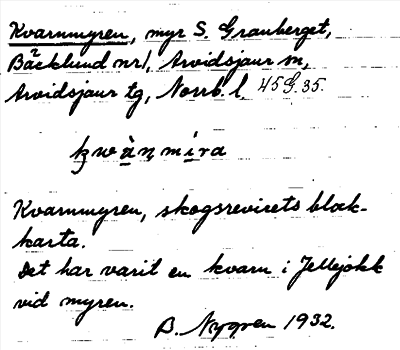 Kvarnmyren, myr S. Granberget,
Bäcklund nr 1, Arvidsjaur sn,
Arvidsjaur tg, Norrb. l. 45 G. 35.
kwàṇmíra
Kvarnmyren, skogsrevirets block-
karta.
Det har varit en kvarn i Jellejokk
vid myren.
B. Nygren 1932.